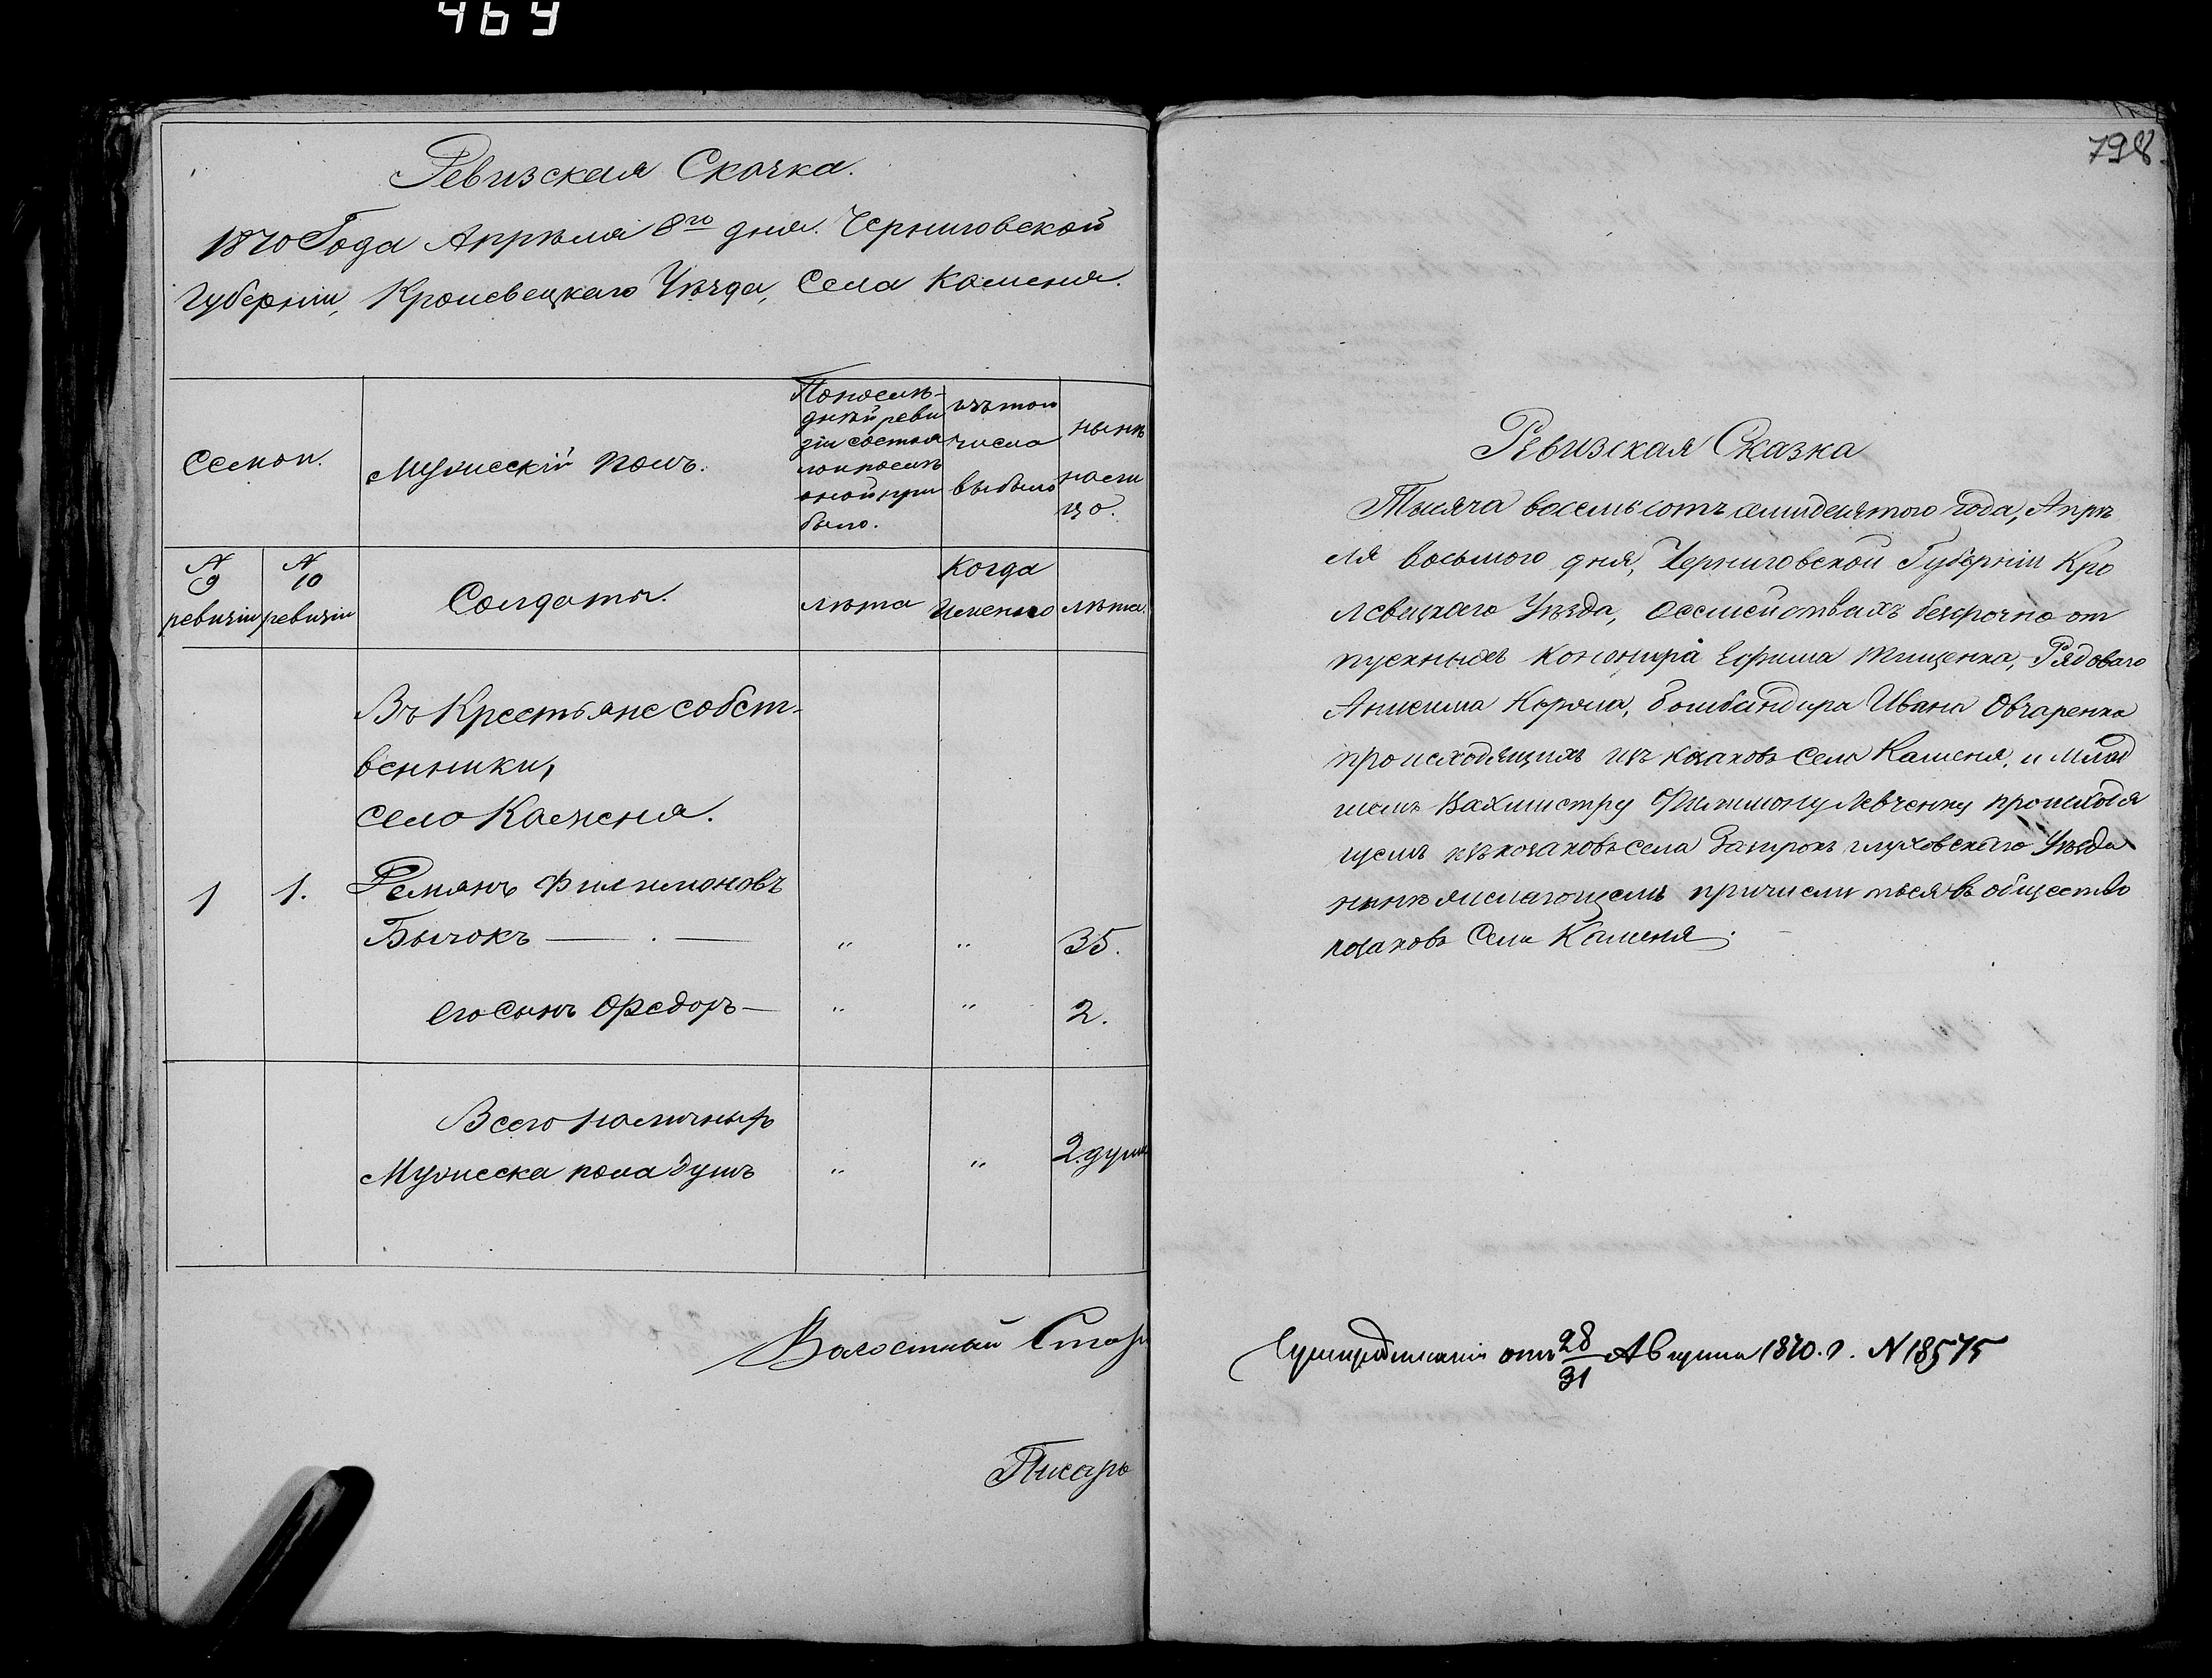 469
Ревизская Скозка.
1870 Года Апрѣля 8го дня. Черниговской
Губерніи, Кролевецкаго Уѣзда, Села Каменя.
Семьи.
Мужескій полъ.
Попослѣ-
днѣй реви
зіи состоя
ло и послѣ
оной при
было.
изъ того
числа
выбыло
нынѣ
нали
цо.
N
9
ревизіи
N
10
ревизіи
Солдаты.
лѣта
Когда
Именно
лѣта.
Въ Крестьяне собст-
венники,
село Каменя.
1 1. Романъ Филимоновъ
Бычокъ — . — " " 35.
его сынъ Федоръ — " " 2.
Всего наличныхъ
Мужеска пола душъ " " 2. души
Волостный Стар
Писарь
798.
Ревизская Сказка
Тысяча восемьсотъ семидесятого года, Апрѣ
ля восьмого дня, Черниговской Губерніи Кро
левецкаго Уѣзда, о семействахъ безсрочно от
пускныхъ Канонира Ефима Тищенка, Рядоваго
Анисима Коряка, бомбандира Ивана Овчаренка
происходящихъ изъ козаковъ села Каменя, и млад
шемъ Вахмистру Филимону Левченку происходя
щемъ изъ козаковъ села глуховскаго Уѣзда
нынѣ желающемъ причислиться въ общество
козаковъ Села Каменя.
отъ 28/31 Августа 1870. г. N 18575